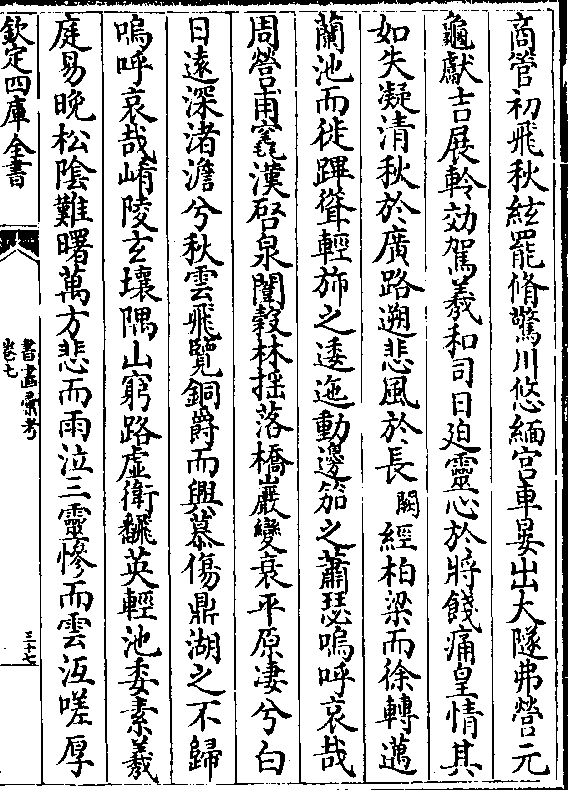 商管初飛秋絃罷脩驚川悠緬宫車晏出大隧弗營元
龜獻吉展軨効駕羲和司日廹靈心於將餞痛皇情其
如失凝清秋於廣路遡悲風於長闕經柏梁而徐轉邁
蘭池而徙蹕聳輕旆之逶迤動邊笳之蕭瑟嗚呼哀哉
周營甫竁漢啓泉闥穀林揺落橋巖變衰平原淒兮白
日逺深渚澹兮秋雲飛覽銅爵而興慕傷鼎湖之不歸
嗚呼哀哉崤陵玄壤隅山窮路虚衛飜英輕池委素羲
庭易晚松陰難曙萬方悲而雨泣三靈慘而雲沍嗟厚
欽定四庫全書
書畵彚考
卷七
三十七